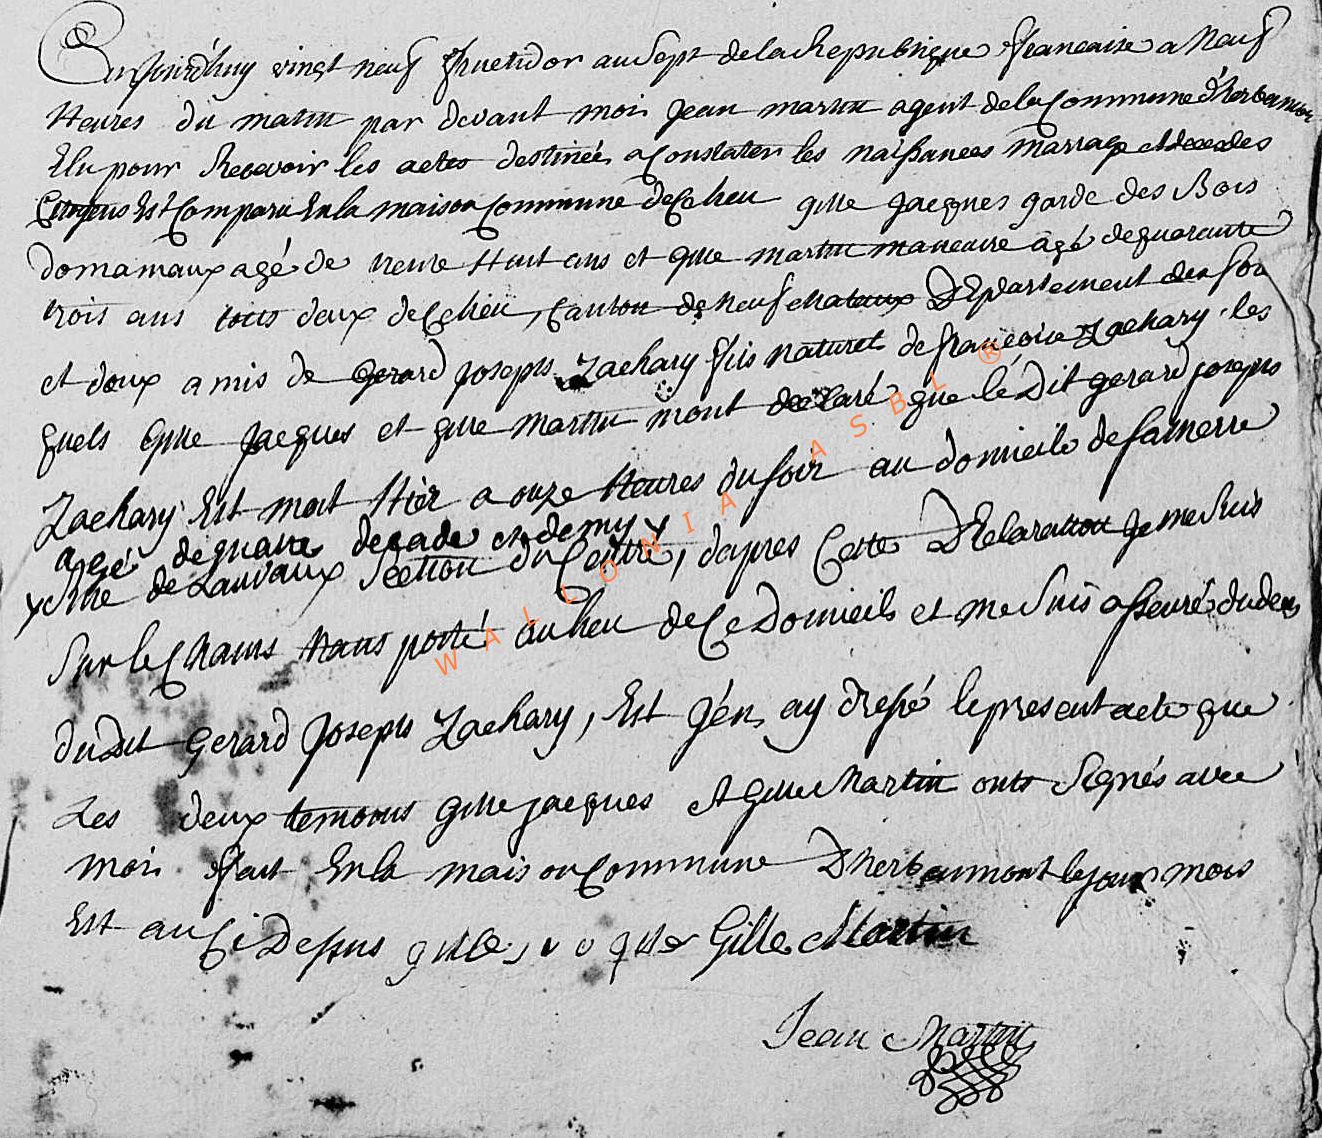 Aujourd'huy vingt neuf fructidor an sept de la Republique francaise a Neuf
Heures du matin par devant moi Jean martin agent de la Commune d'herbeumon
Elu pour Recevoir les actes destinée a Constater les naissances mariage et deces des
Citoyens Est Comparu En la maison Commune de Ce lieu gille Jacques garde des Bois
domaniaux agé de trente Huit ans et gille martin maneuvre agé de quarante
trois ans tous deux de Ce lieu, Canton de Neufchateaux Departement des for
et doux amis de Gerard Joseph Zachary fils naturel de francoise Zachary. les
quels Gille Jacques et gille martin mont declaré que le Dit gerard joseph
Zachary Est mort Hier a onze Heures du soir au domicile de sa merre
agé de quatre decade et demy x
x Rue de Lauvaux Section du Centre, dapres Cette Declaration Je me Suis
Sur le Chams trans porté au lieu de Ce Domicile et me Suis assuré du deces
du Dit Gerard Joseph Zachary, Est Jén ay dressé le present acte que
Les deux temoins gille jacques et gille Martin onts Signés avec
moi fait En la maison Commune D'herbeumont le jour mois
Est an Ci Dessus gille Gille Martin
Jean Martin
WALLONIA ASBL ®